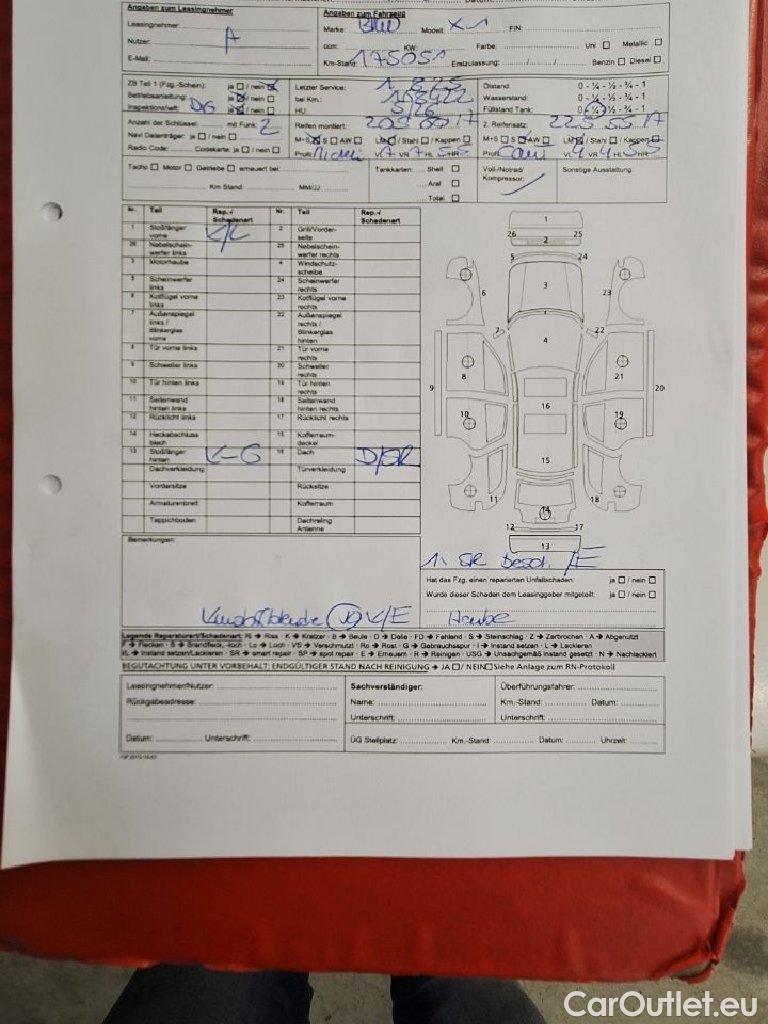 Angaben zum Leasingnehmer: Angaben zum Fahrzeug
Leasingnehmer: Marke: BMW Modell: X-1 FIN:
Nutzer: A ccm: KW: Farbe: Uni ☐ Metallic ☐
E-Mail: Km-Stand: 175051 Erstzulassung: Benzin ☐ Diesel ☐
ZB Teil 1 (Fzg.-Schein): ja ☐ / nein ☒ Letzter Service: Ölstand: 0 - ¼ - ½ - ¾ - 1
Betriebsanleitung: ja ☒ / nein ☐ bei Km.: Wasserstand: 0 - ¼ - ½ - ¾ - 1
Inspektionsheft: DG ja ☒ / nein ☐ HU: 5/26 Füllstand Tank: 0 - ¼ - ½ - ¾ - 1
Anzahl der Schlüssel: mit Funk: 2 Reifen montiert: 17 2. Reifensatz: 225 55 17
Navi Datenträger: ja ☐ / nein ☐ M+S ☒ S ☐ AW ☐ LM ☒ / Stahl ☐ / Kappen ☐ M+S ☐ S ☒ AW ☐ LM ☒ / Stahl ☐ / Kappen ☐
Radio Code: Codekarte: ja ☐ / nein ☐ Profil VL 7 VR 7 HL 5 HR 5 Profil: VL 4 VR 4 HL 5 HR 5
Tacho ☐ Motor ☐ Getriebe ☐ erneuert bei: Tankkarten: Shell ☐ Voll-/Notrad/ Sonstige Ausstattung:
Kompressor:
Aral ☐
Km Stand MM/JJ
Total ☐
Nr. Teil Rep.-/ Schadenart Nr. Teil Rep.-/ Schadenart
1 Stoßfänger vorne K/L 2 Grill/Vorderseite
26 Nebelscheinwerfer links 25 Nebelscheinwerfer rechts
3 Motorhaube 4 Windschutzscheibe
5 Scheinwerfer links 24 Scheinwerfer rechts
6 Kotflügel vorne links 23 Kotflügel vorne rechts
7 Außenspiegel links / Blinkerglas vorne 22 Außenspiegel rechts / Blinkerglas hinten
8 Tür vorne links 21 Tür vorne rechts
9 Schweller links 20 Schweller rechts
10 Tür hinten links 19 Tür hinten rechts
11 Seitenwand hinten links 18 Seitenwand hinten rechts
12 Rücklicht links 17 Rücklicht rechts
14 Heckabschlussblech 15 Kofferraumdeckel
13 Stoßfänger hinten K-G 16 Dach D/SR
Dachverkleidung Türverkleidung
Vordersitze Rücksitze
Armaturenbrett Kofferraum
Teppichboden Dachreling Antenne
1
26 25
2
5 24
3
6 23
7 22
4
8 21
9 20
16
10 19
15
11 18
14
12 17
13
Bemerkungen:
1. SR Besch. /E
Hat das Fzg. einen reparierten Unfallschaden: ja ☐ / nein ☐
Wurde dieser Schaden dem Leasinggeber mitgeteilt: ja ☐ / nein ☐
K/E Haube
Legende Reparaturart/Schadenart: Ri → Riss · K → Kratzer · B → Beule · D → Delle · FD → Fehlend · S → Steinschlag · Z → Zerbrochen · A → Abgenutzt
F → Flecken · B → Brandfleck, -loch · Lo → Loch · VS → Verschmutzt · Ro → Rost · G → Gebrauchsspur · I → Instand setzen · L → Lackieren
I/L → Instand setzen/Lackieren · SR → smart repair · SP → spot repair · E → Erneuern · R → Reinigen · USG → Unsachgemäß instand gesetzt · N → Nachlackiert
BEGUTACHTUNG UNTER VORBEHALT; ENDGÜLTIGER STAND NACH REINIGUNG → JA ☐ / NEIN ☐ Siehe Anlage zum RN-Protokoll
Leasingnehmer/Nutzer: Sachverständiger: Überführungsfahrer:
Rückgabeadresse: Name: Km.-Stand: Datum:
Unterschrift: Unterschrift:
Datum: Unterschrift: ÜG Stellplatz: Km.-Stand: Datum: Uhrzeit:
CarOutlet.eu